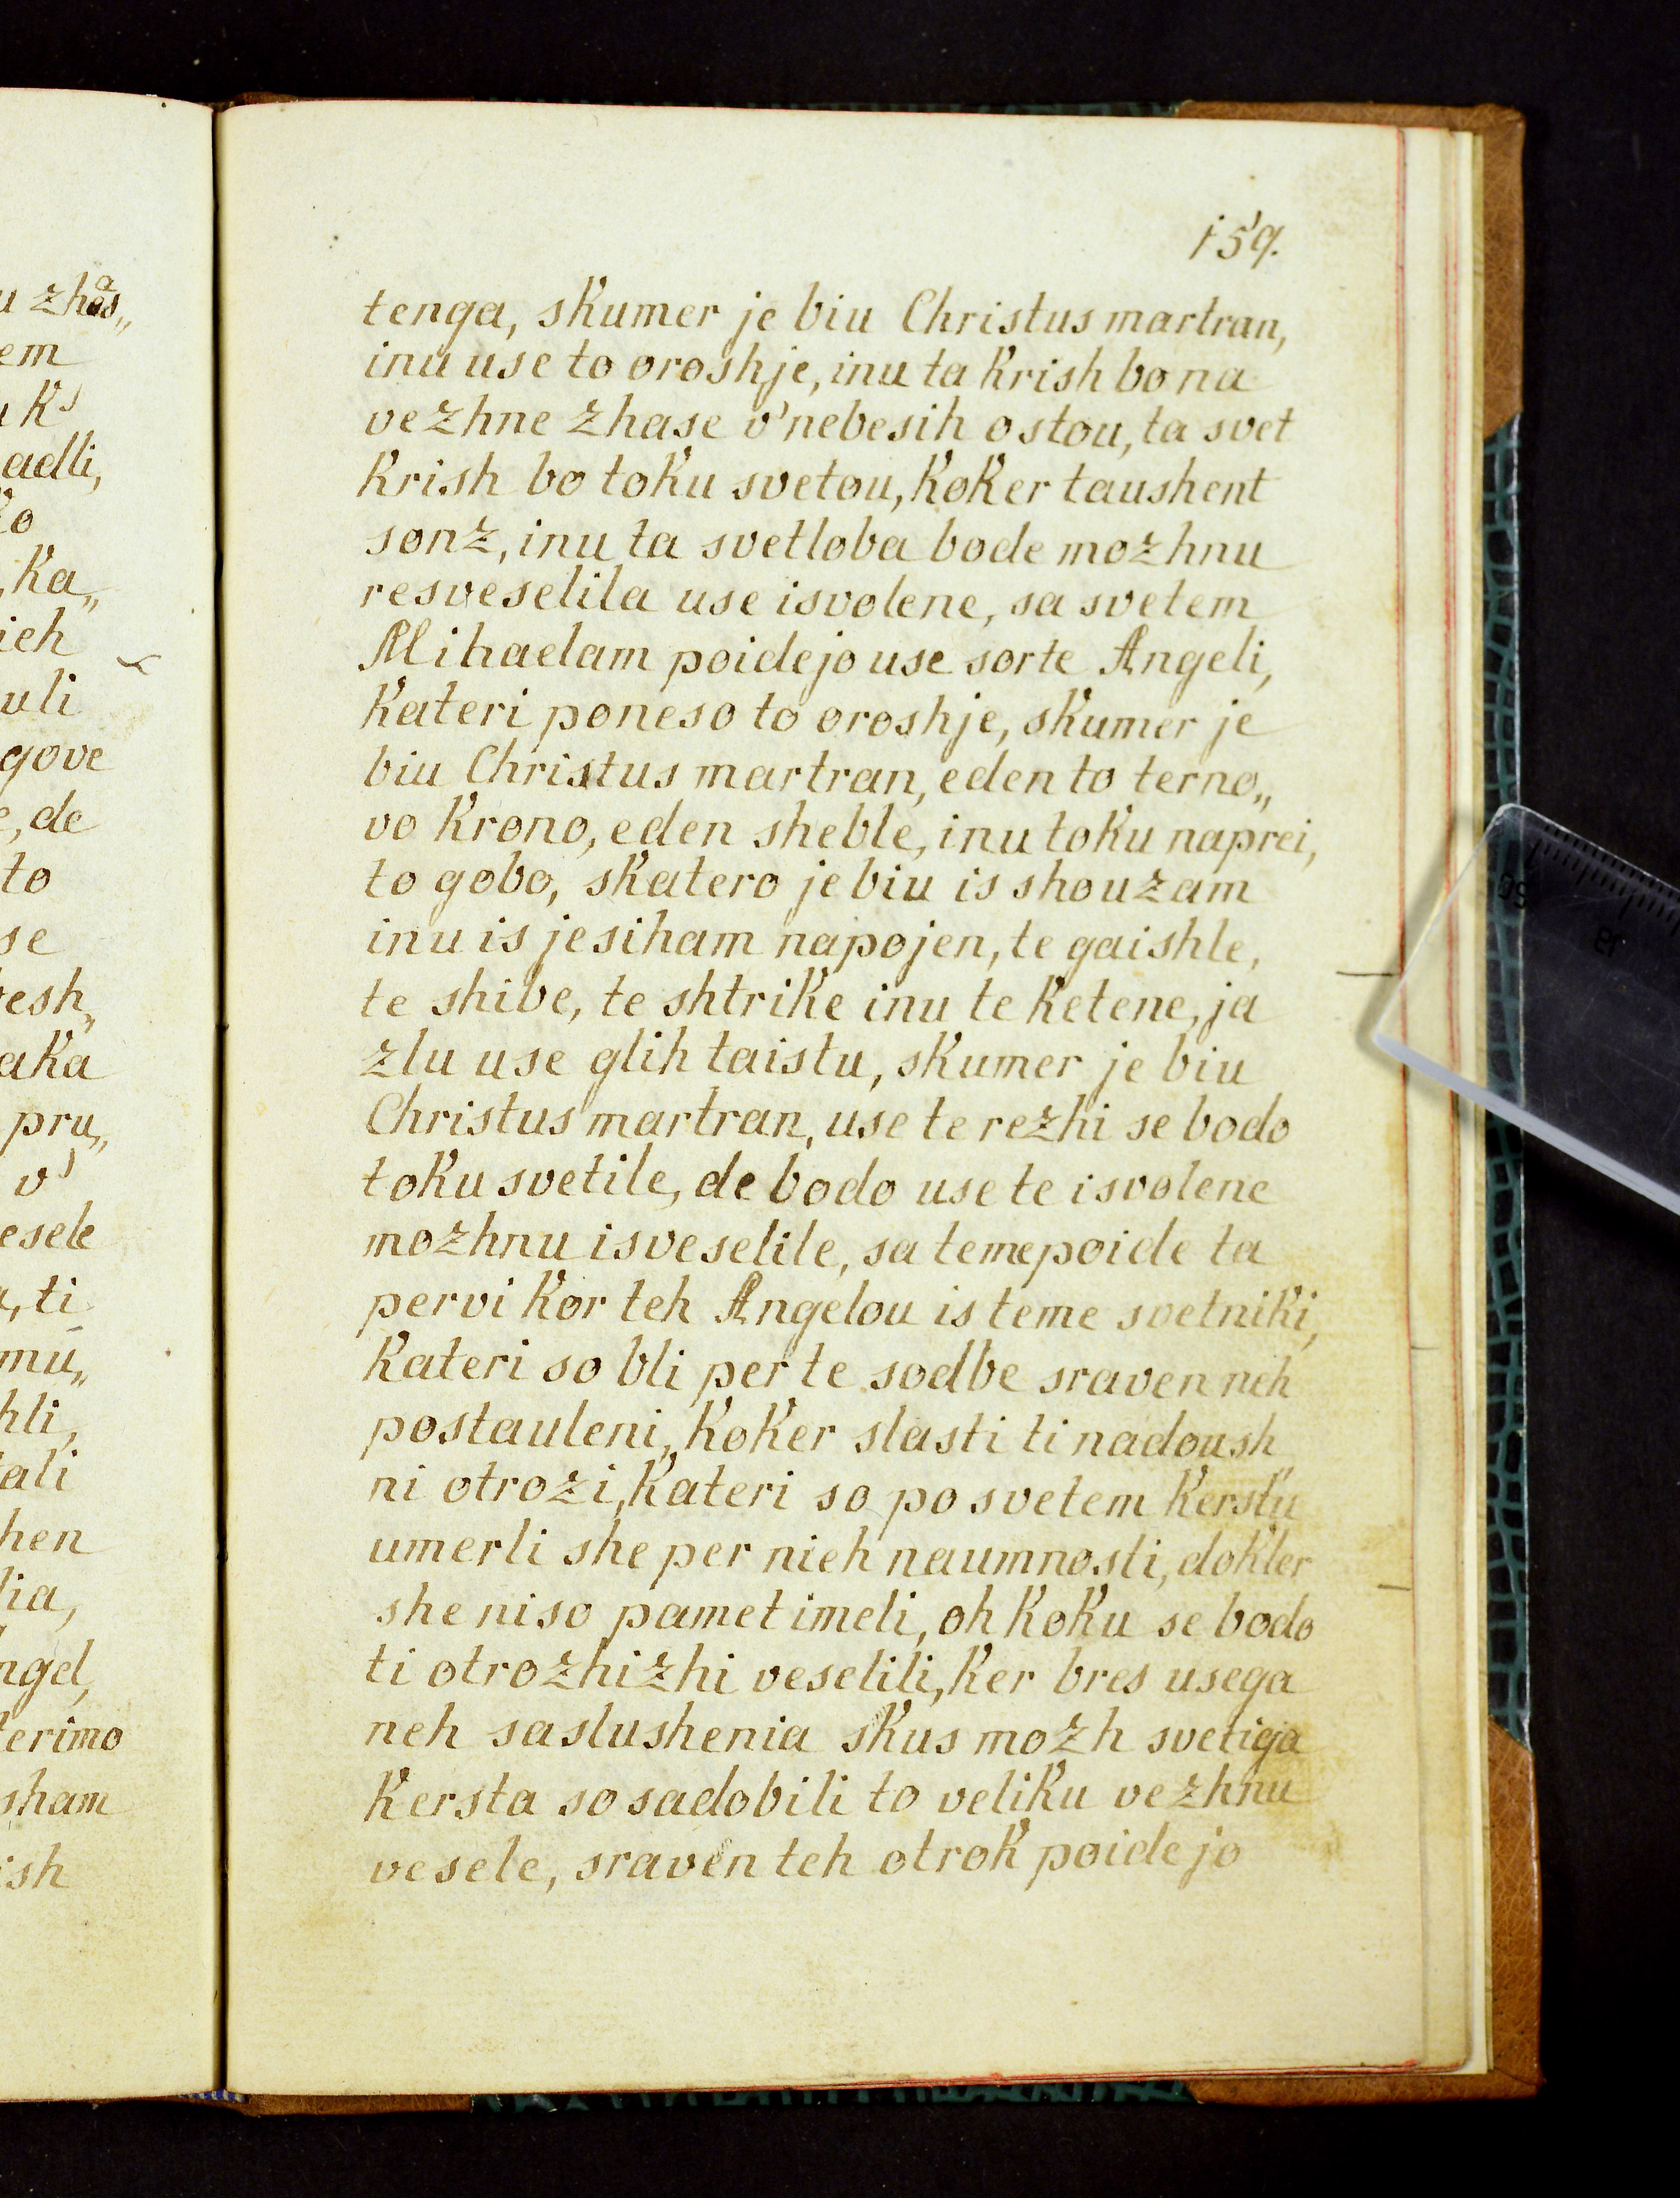 u zhas„
em
u k'
adli,
ka„
ieh
uli
gove
e, de
to
se
esh„
aka
pru„
v'
esele
ti
mu„
hli,
ali
hen
lia,
ngel,
terimo
sham
ish
159.
tenga, skumer je biu Christus martran,
inu use to oroshje, inu ta krish bo na
vezhne zhase v'nebesih ostou, ta svet
krish bo toku svetou, koker taushent
sonz, inu ta svetloba bode mozhnu
resveselila use isvolene, sa svetem
Mihaelam poidejo use sorte Angeli,
kateri poneso to oroshje, skumer je
biu Christus martran, eden to terno„
vo krono, eden sheble, inu toku naprei,
to gobo, skatero je biu is shouzam
inu is jesiham napojen, te gaishle,
te shibe, te shtrike inu te ketene, ja
zlu use glih taistu, skumer je biu
Christus martran, use te rezhi se bodo
toku svetile, de bodo use te isvolene
mozhnu isveselile, sa teme poide ta
pervi kor teh Angelou is teme svetniki,
kateri so bli per te sodbe sraven nih
postauleni, koker slasti ti nadoush„
ni otrozi, kateri so po svetem kerstu
umerli she per nieh naumnosti, dokler
she niso pamet imeli, oh koku se bodo
ti otrozhizhi veselili, ker bres usega
neh saslushenia skus mozh svetiga
kersta so sadobili to veliku vezhnu
vesele, sraven teh otrok poidejo